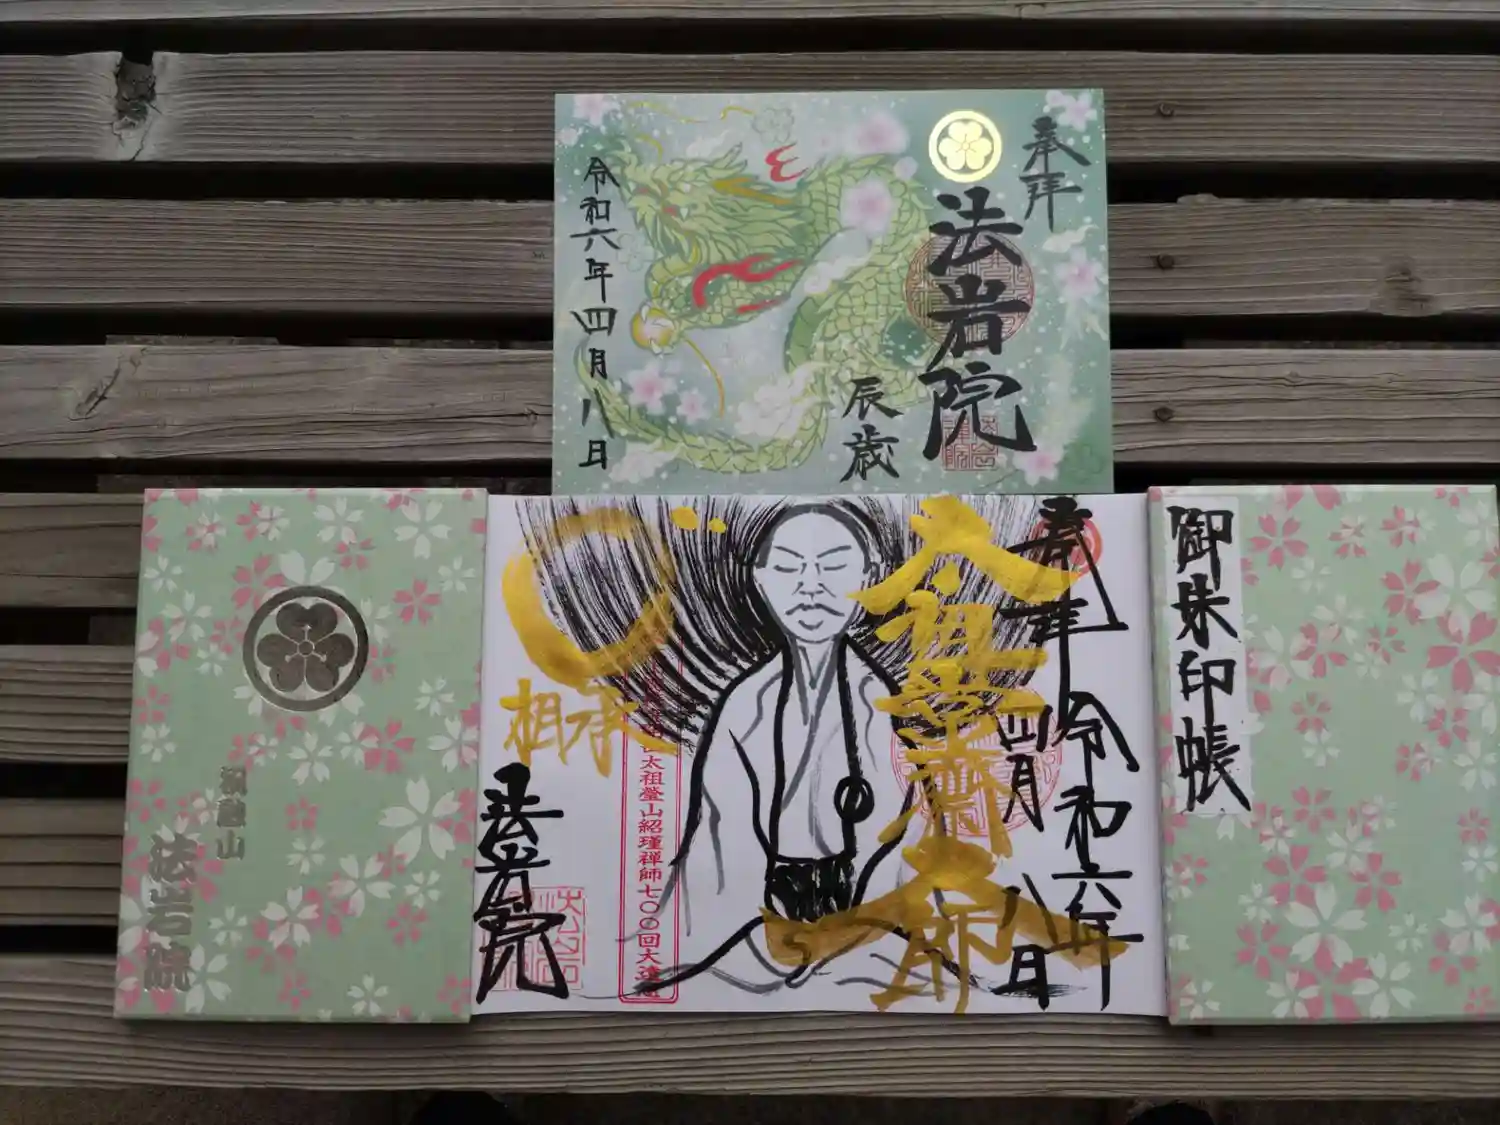 奉拝
法岩院
辰歳
令和六年四月八日
御朱印帳
奉拝
令和六年
四月八日
太祖瑩山紹瑾禅師七〇〇回大遠忌
相承
法岩院
法岩院